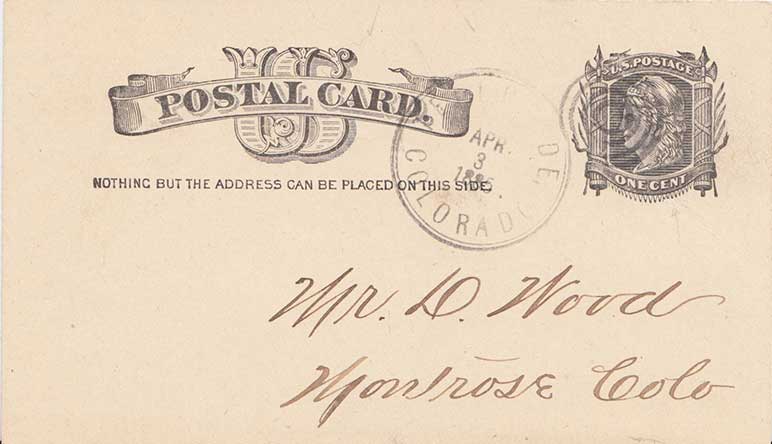 US
POSTAL CARD.
NOTHING BUT THE ADDRESS CAN BE PLACED ON THIS SIDE.
U.S. POSTAGE
ONE CENT
APR.
3
COLORADO
Mr. D. Wood
Montrose Colo